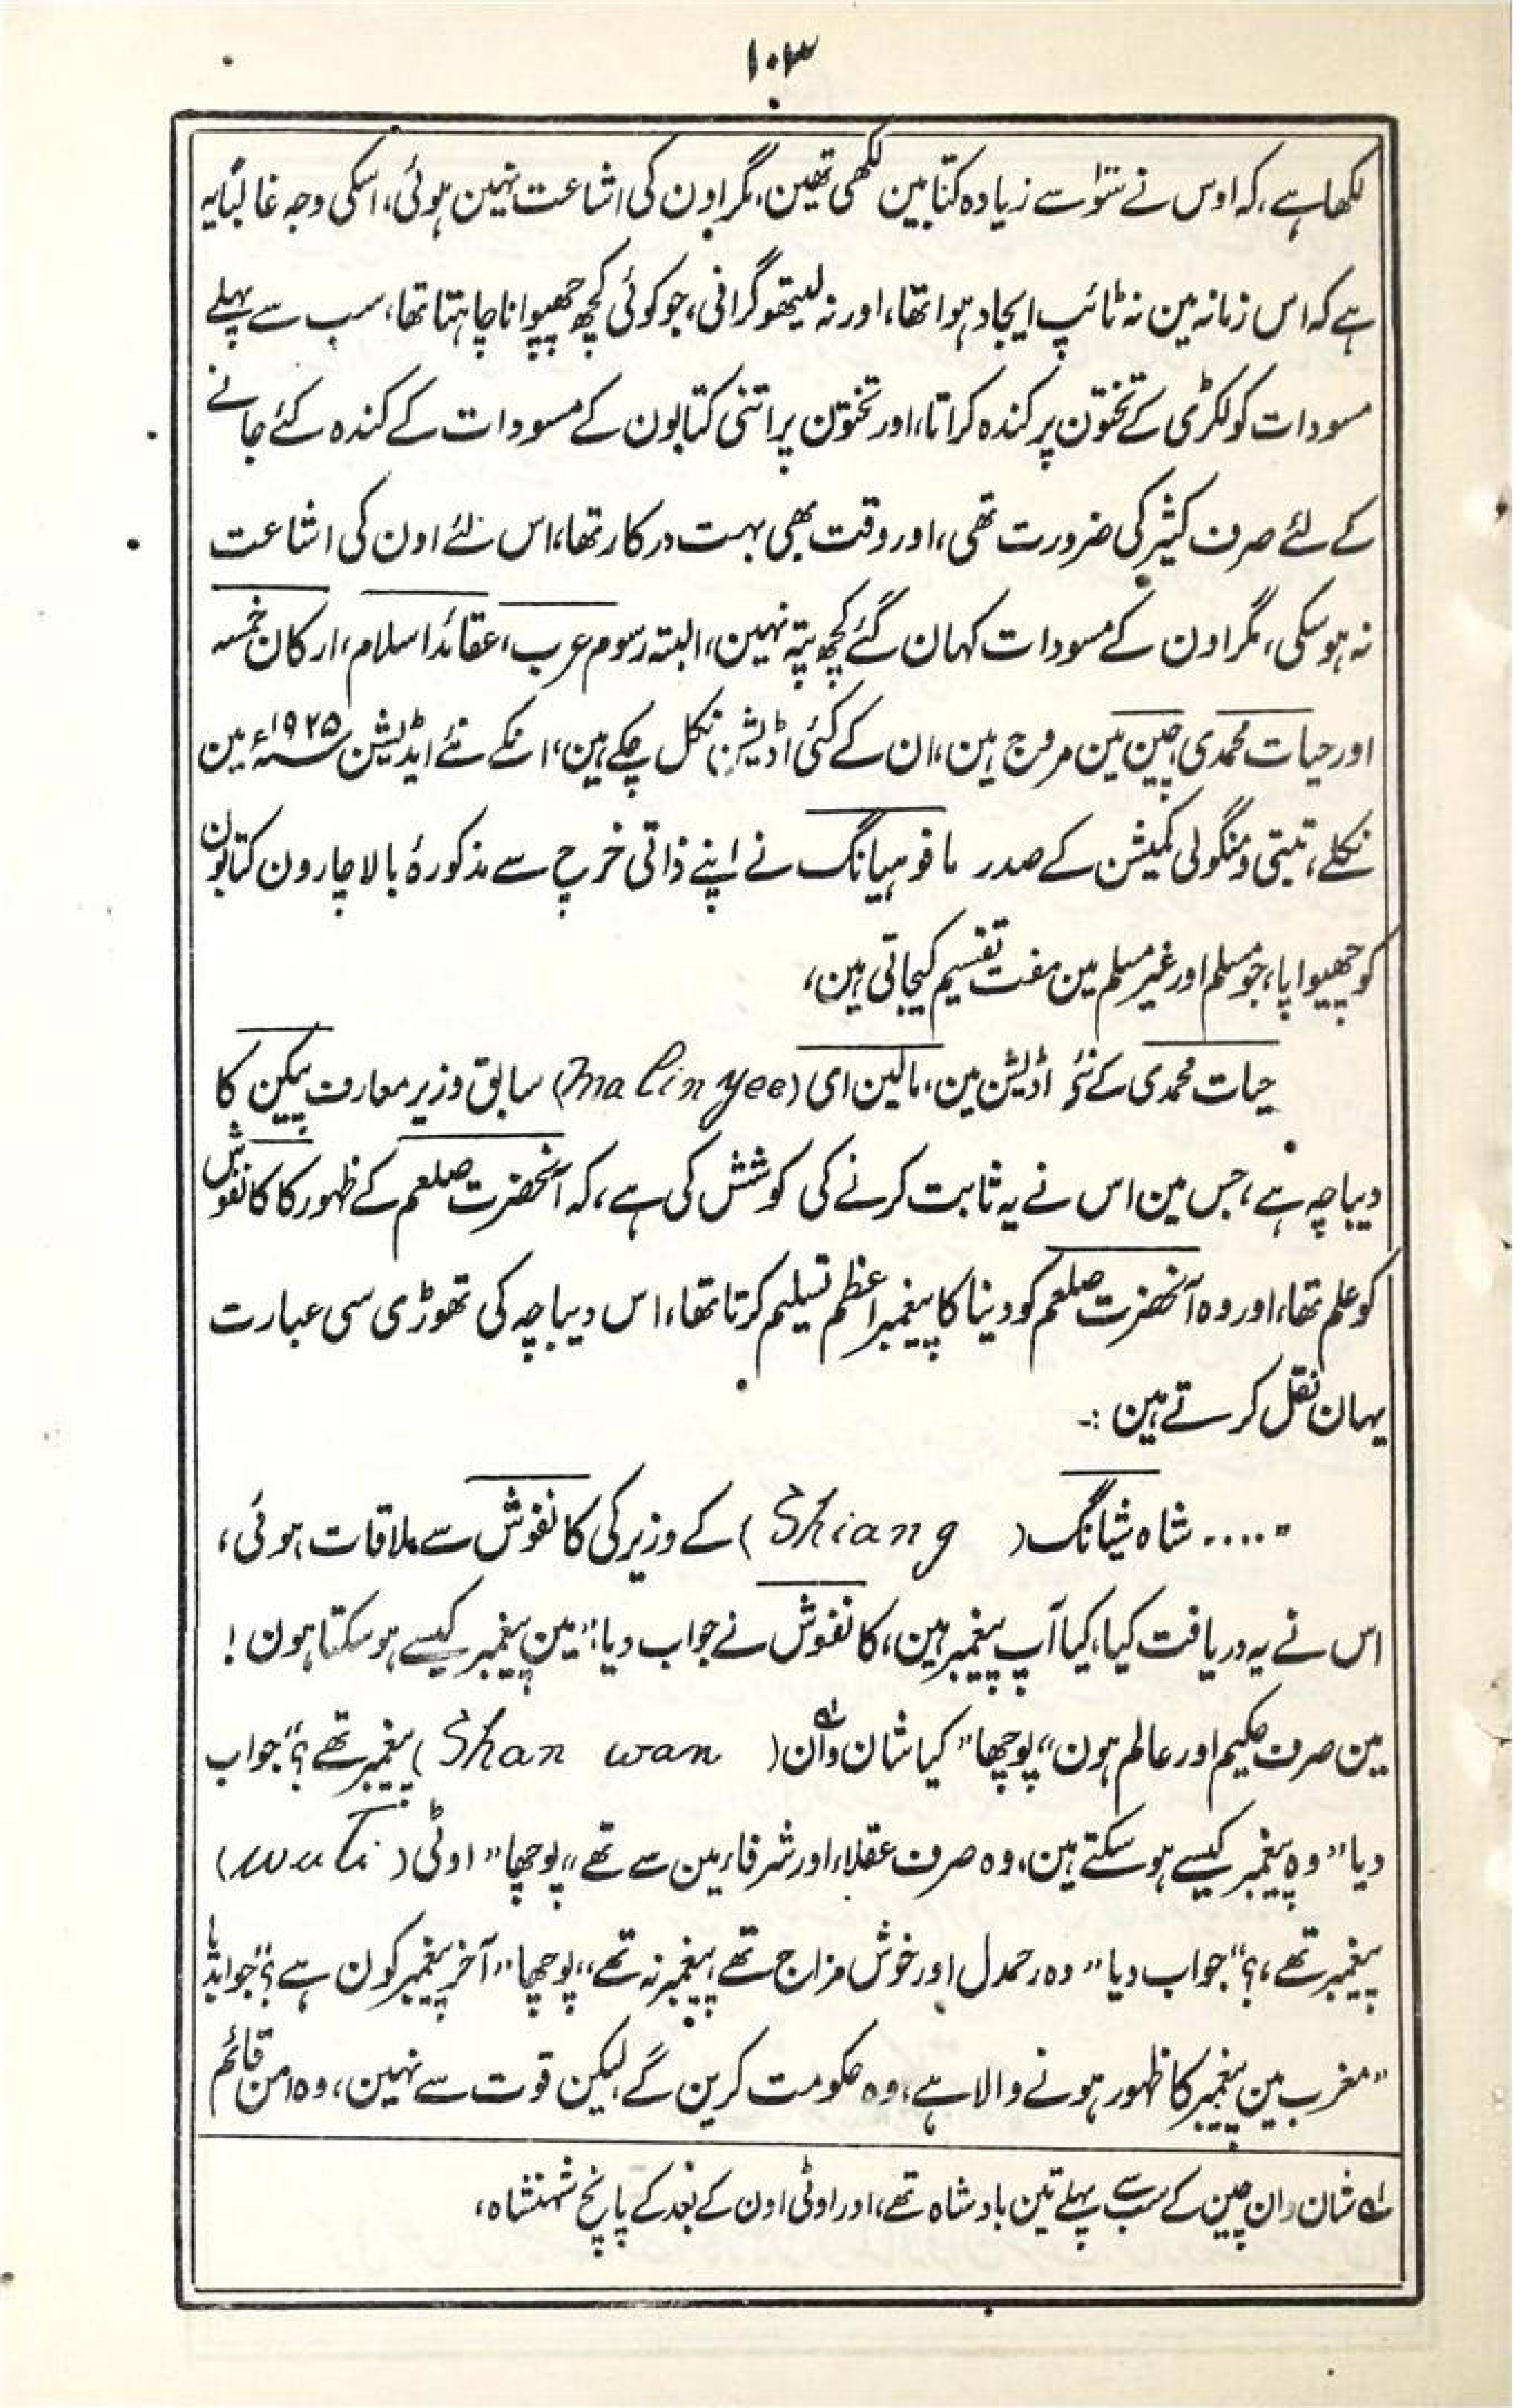 ۱۰۳
لکھا ہے، کہ اوس نے سَو سے زیادہ کتابین لکھی تھین، مگر اون کی اشاعت نہین ہوئی، اسکی وجہ غالباً یہ
ہے کہ اس زمانہ مین نہ ٹائپ ایجاد ہوا تھا، اور نہ لیتھو گرافی، جو کوئی کچھ چھپوانا چاہتا تھا، سب سے پہلے
مسودات کو لکڑی کے تختون پر کندہ کراتا، اور تختون پر اتنی کتابون کے مسودات کے کندہ کئے جانے
کے لئے صرف کثیر کی ضرورت تھی، اور وقت بھی بہت درکار تھا، اس لئے اون کی اشاعت
نہ ہو سکی، مگر اون کے مسودات کہان گئے کچھ پتہ نہین، البتہ رسوم عرب، عقائد اسلام، ارکان خمسہ
اور حیات محمدی چین مین مروج ہین، ان کے کئی اڈیشن نکل چکے ہین، انکے نئے ایڈیشن ۱۹۲۵ء مین
نکلے، تبتی و منگولی کمیشن کے صدر ما فو ہیانگ نے اپنے ذاتی خرچ سے مذکورۂ بالا چارون کتابون
کو چھپوایا، جو مسلم اور غیر مسلم مین مفت تقسیم کیجاتی ہین،
حیات محمدی کے نئے اڈیشن مین، مالین ای (ma lin yee) سابق وزیر معارف پیکن کا
دیباچہ ہے، جس مین اس نے یہ ثابت کرنے کی کوشش کی ہے، کہ آنحضرت صلعم کے ظہور کا کانفوش
کو علم تھا، اور وہ آنحضرت صلعم کو دنیا کا پیغمبر اعظم تسلیم کرتا تھا، اس دیباچہ کی تھوڑی سی عبارت
یہان نقل کرتے ہین :۔
"..... شاہ شیانگ (Shiang) کے وزیر کی کانفوش سے ملاقات ہوئی،
اس نے یہ دریافت کیا، کیا آپ پیغمبر ہین، کانفوش نے جواب دیا، "مین پیغمبر کیسے ہو سکتا ہون !
مین صرف حکیم اور عالم ہون" پوچھا "کیا شان وان ؎۱ (Shan wan) پیغمبر تھے ؟" جواب
دیا "وہ پیغمبر کیسے ہو سکتے ہین، وہ صرف عقلاء اور شرفاء مین سے تھے" پوچھا "اوٹی (wu ti)
پیغمبر تھے، ؟" جواب دیا "وہ رحمدل اور خوش مزاج تھے، پیغمبر نہ تھے" پوچھا "آخر پیغمبر کون ہے ؟" جواب دیا
"مغرب مین پیغمبر کا ظہور ہونے والا ہے، وہ حکومت کرین گے لیکن قوت سے نہین، وہ امن قائم
؎۱ شان وان چین کے سب سے پہلے تین بادشاہ تھے، اور اوٹی اون کے بعد کے پانچ شہنشاہ،